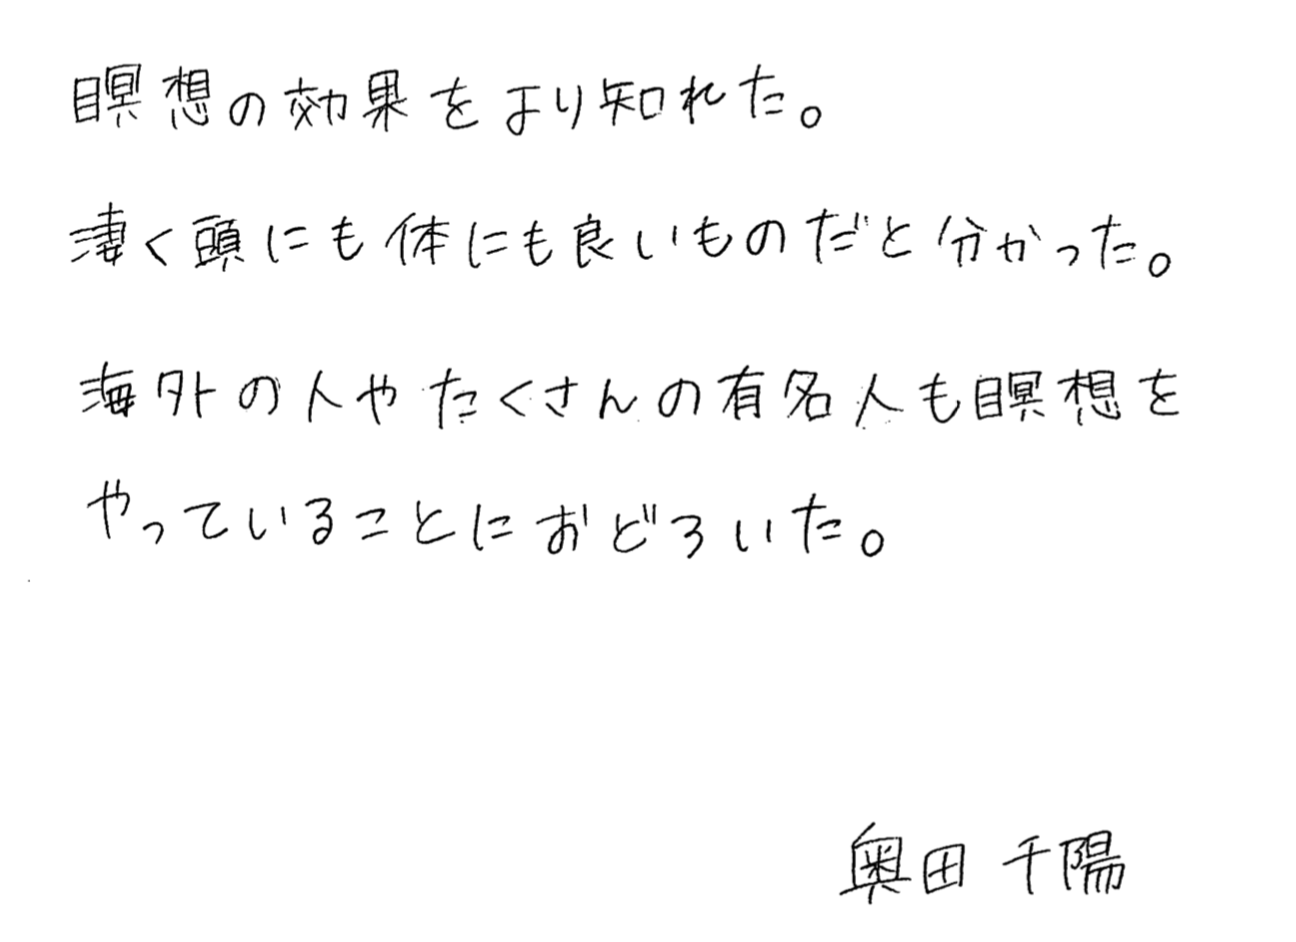 瞑想の効果をより知れた。
凄く頭にも体にも良いものだと分かった。
海外の人やたくさんの有名人も瞑想を
やっていることにおどろいた。
奥田 千陽